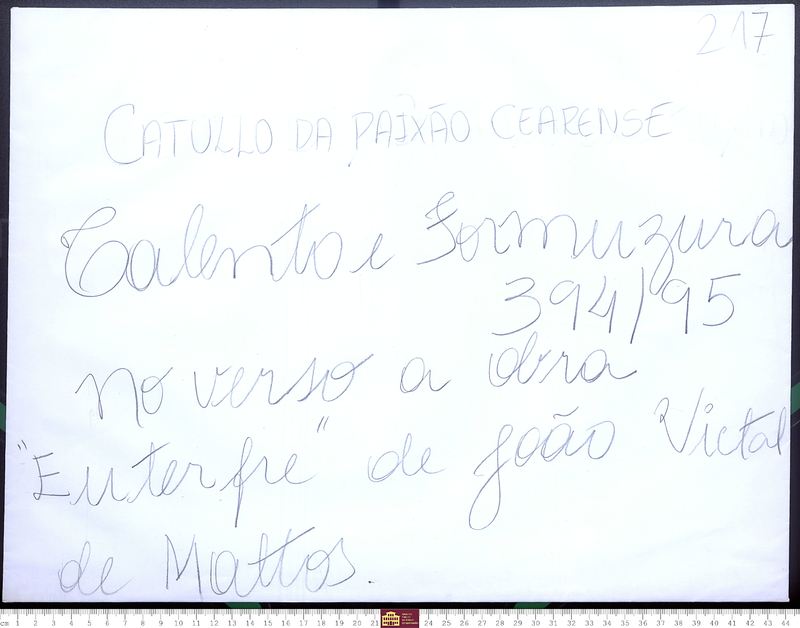 217
CATULLO DA PAIXÃO CEARENSE
Talento e Formuzura
394/95
no verso a obra
"Euterfre" de João Victal
de Mattos.
cm 1 2 3 4 5 6 7 8 9 10 11 12 13 14 15 16 17 18 19 20 21 24 25 26 27 28 29 30 31 32 33 34 35 36 37 38 39 40 41 42 43 44